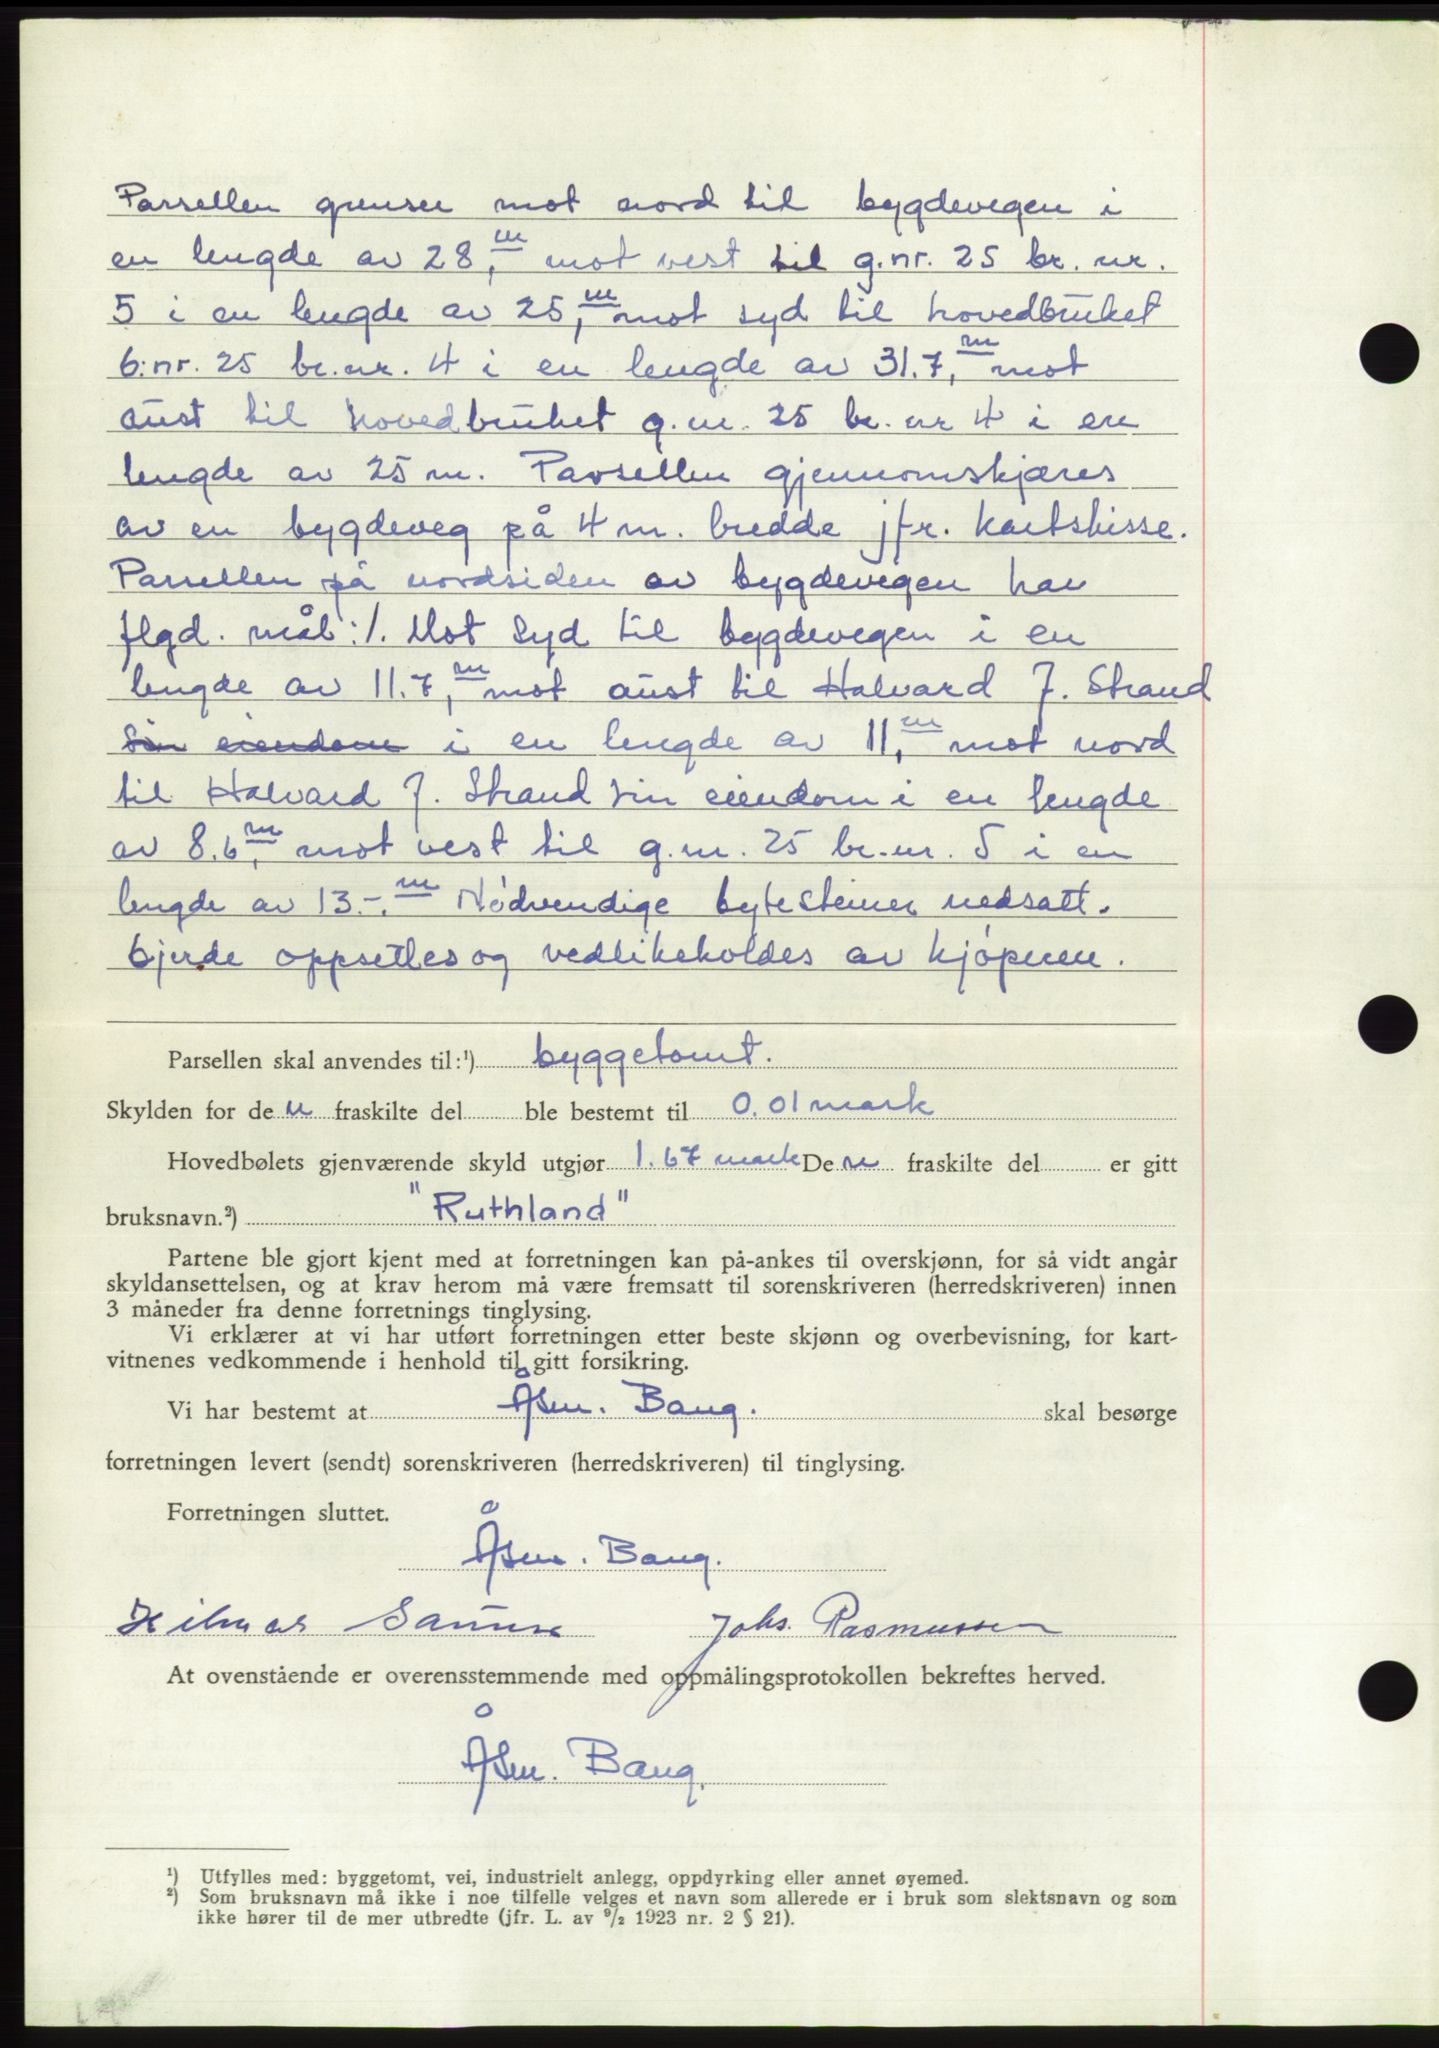 Parsellen grenser mot nord til bygdevegen i
en lengde av 28,m mot vest til g.nr. 25 br. nr.
5 i en lengde av 25,m mot syd til hovedbruket
G.nr. 25 br.nr. 4 i en lengde av 31.7,m mot
aust til hovedbruket g.nr. 25 br.nr 4 i en
lengde av 25 m. Parsellen gjennomskjæres
av en bygdeveg på 4 m. bredde jfr. kartskisse.
Parsellen på nordsiden av bygdevegen har
flgd. mål:/. Mot Syd til bygdevegen i en
lengde av 11.7,m mot aust til Halvard J. Strand
sin eiendom i en lengde av 11,m mot nord
til Halvard J. Strand sin eiendom i en lengde
av 8.6,m mot vest til g.nr. 25 br.nr. 5 i en
lengde av 13.-.m Nødvendige bytesteiner nedsatt.
Gjerde oppsettes og vedlikeholdes av kjøperen.
Parsellen skal anvendes til:¹) byggetomt.
Skylden for den fraskilte del ble bestemt til 0.01 mark
Hovedbølets gjenværende skyld utgjør 1.67 mark Den fraskilte del er gitt
bruksnavn.²) "Ruthland"
Partene ble gjort kjent med at forretningen kan på-ankes til overskjønn, for så vidt angår
skyldansettelsen, og at krav herom må være fremsatt til sorenskriveren (herredskriveren) innen
3 måneder fra denne forretnings tinglysing.
Vi erklærer at vi har utført forretningen etter beste skjønn og overbevisning, for kart-
vitnenes vedkommende i henhold til gitt forsikring.
Vi har bestemt at Åsm. Bang. skal besørge
forretningen levert (sendt) sorenskriveren (herredskriveren) til tinglysing.
Forretningen sluttet.
Åsm. Bang.
Hilmar Johs. Rasmussen
At ovenstående er overensstemmende med oppmålingsprotokollen bekreftes herved.
Åsm. Bang.
¹) Utfylles med: byggetomt, vei, industrielt anlegg, oppdyrking eller annet øyemed.
²) Som bruksnavn må ikke i noe tilfelle velges et navn som allerede er i bruk som slektsnavn og som
ikke hører til de mer utbredte (jfr. L. av 9/2 1923 nr. 2 § 21).